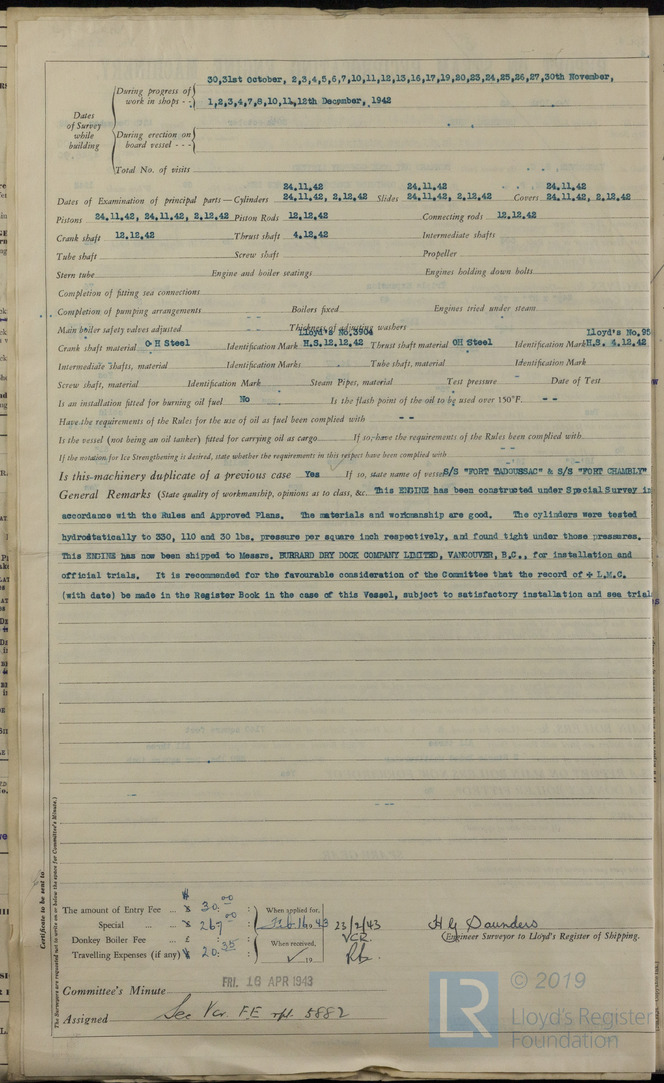 30,31st October, 2,3,4,5,6,7,10,11,12,13,16,17,19,20,23,24,25,26,27,30th November,
During progress of work in shops - -
1,2,3,4,7,8,10,11,12th December, 1942
Dates of Survey while building
During erection on board vessel - - -
Total No. of visits
24.11.42 24.11.42 24.11.42
Dates of Examination of principal parts—Cylinders 24.11.42, 2.12.42 Slides 24.11.42, 2.12.42 Covers 24.11.42, 2.12.42
Pistons 24.11.42, 24.11.42, 2.12.42 Piston Rods 12.12.42 Connecting rods 12.12.42
Crank shaft 12.12.42 Thrust shaft 4.12.42 Intermediate shafts
Tube shaft Screw shaft Propeller
Stern tube Engine and boiler seatings Engines holding down bolts
Completion of fitting sea connections
Completion of pumping arrangements Boilers fixed Engines tried under steam
Main boiler safety valves adjusted Thickness of adjusting washers
Lloyd's No.3904 Lloyd's No.95
Crank shaft material OH Steel Identification Mark H.S.12.12.42 Thrust shaft material OH Steel Identification Mark H.S. 4.12.42
Intermediate shafts, material Identification Marks Tube shaft, material Identification Mark
Screw shaft, material Identification Mark Steam Pipes, material Test pressure Date of Test
Is an installation fitted for burning oil fuel No Is the flash point of the oil to be used over 150°F. - -
Have the requirements of the Rules for the use of oil as fuel been complied with - -
Is the vessel (not being an oil tanker) fitted for carrying oil as cargo If so, have the requirements of the Rules been complied with
If the notation for Ice Strengthening is desired, state whether the requirements in this respect have been complied with
Is this machinery duplicate of a previous case Yes If so, state name of vessel S/S "FORT TADOUSSAC" & S/S "FORT CHAMBLY"
General Remarks (State quality of workmanship, opinions as to class, &c. This ENGINE has been constructed under Special Survey in
accordance with the Rules and Approved Plans. The materials and workmanship are good. The cylinders were tested
hydrostatically to 330, 110 and 30 lbs. pressure per square inch respectively, and found tight under those pressures.
This ENGINE has now been shipped to Messrs. BURRARD DRY DOCK COMPANY LIMITED, VANCOUVER, B.C., for installation and
official trials. It is recommended for the favourable consideration of the Committee that the record of + L.M.C.
(with date) be made in the Register Book in the case of this Vessel, subject to satisfactory installation and sea trial
Certificate to be sent to
(The Surveyors are requested not to write on or below the space for Committee's Minute.)
The amount of Entry Fee ... $ 30.00 When applied for,
Special ... $ 267.00 Feb 16 43 23/2/43
Donkey Boiler Fee ... £ VCR.
Travelling Expenses (if any) $ 20.35 When received, 19
H G Saunders
Engineer Surveyor to Lloyd's Register of Shipping.
Committee's Minute FRI. 16 APR 1943
Assigned See Vcr FE rpt. 5882
LR © 2019
Lloyd's Register
Foundation